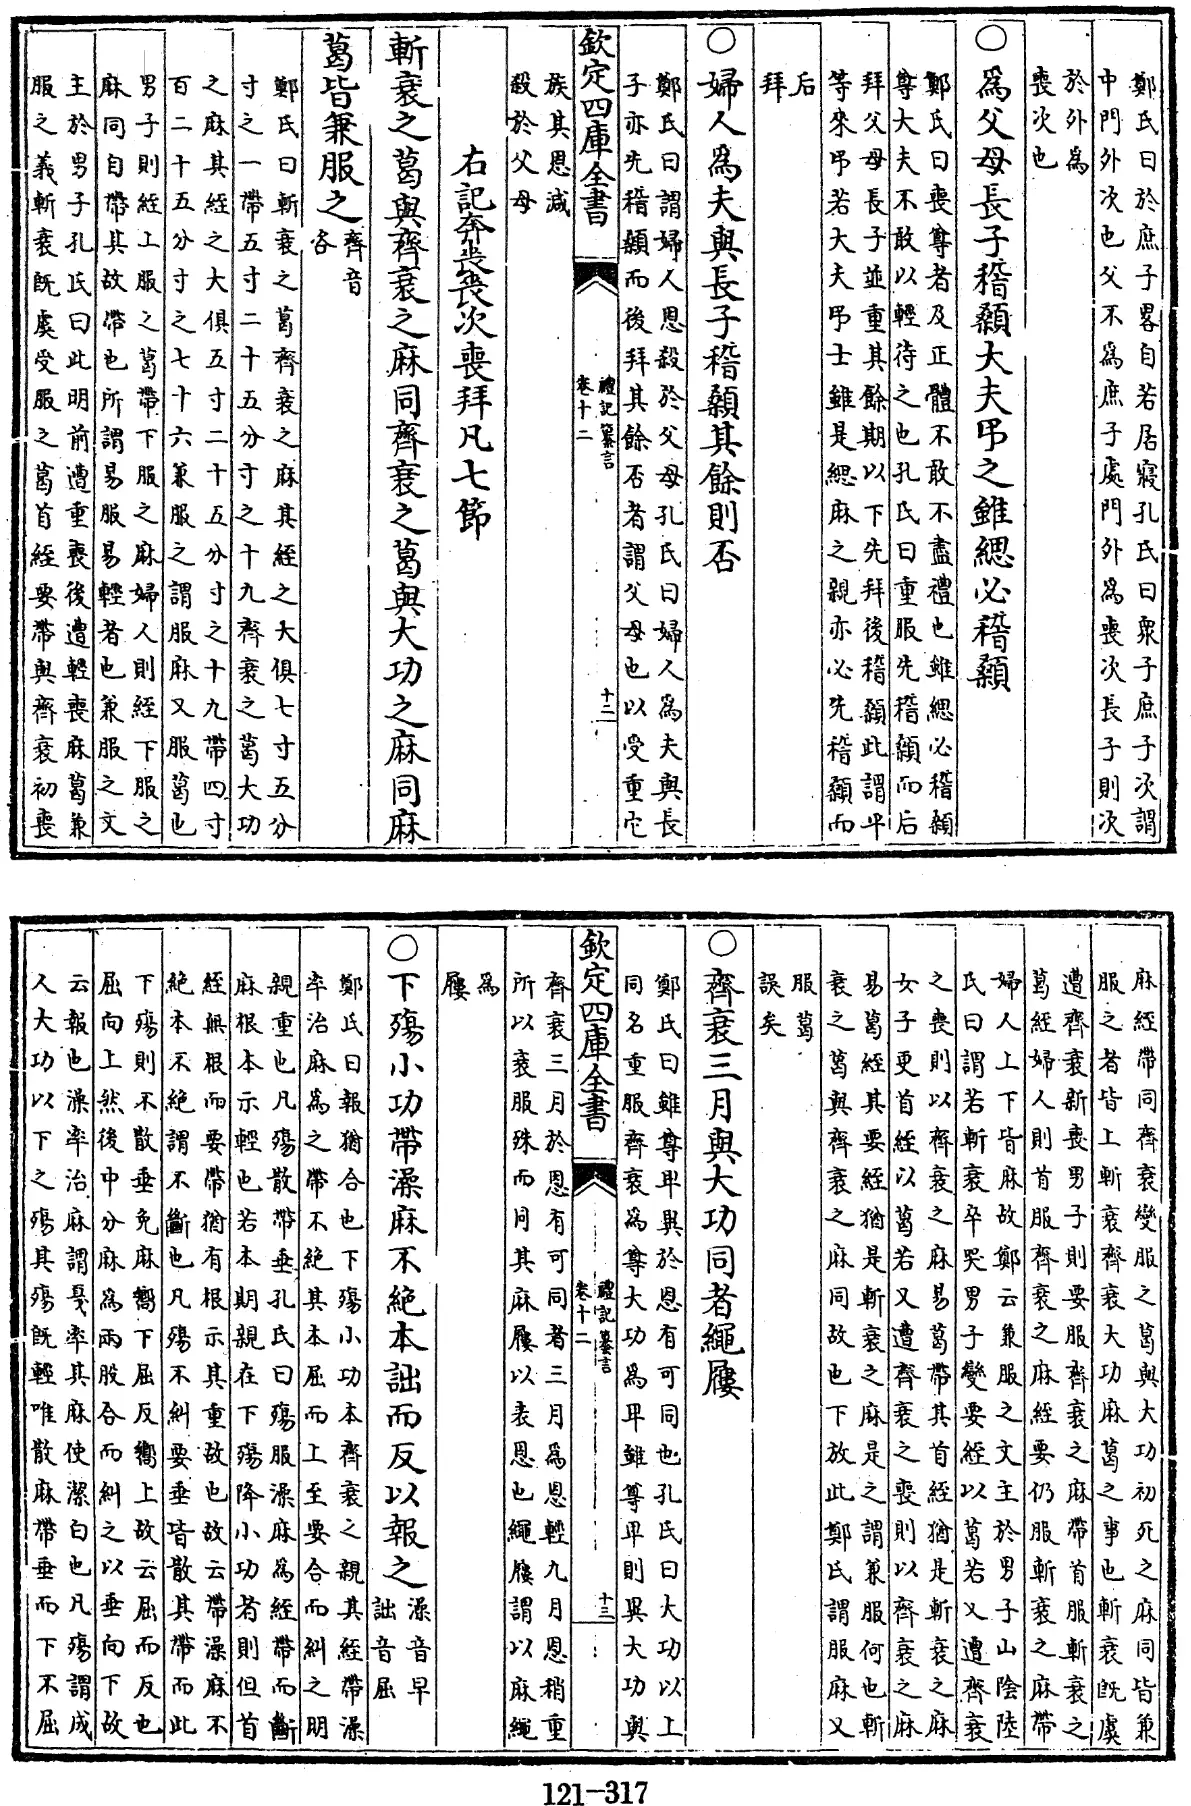 鄭氏曰於庶子畧自若居寢孔氏曰衆子庶子次謂
中門外次也父不為庶子處門外為喪次長子則次
於外為
喪次也
○為父母長子稽顙大夫弔之雖緦必稽顙
鄭氏曰喪尊者及正體不敢不盡禮也雖緦必稽顙
尊大夫不敢以輕待之也孔氏曰重服先稽顙而后
拜父母長子並重其餘期以下先拜後稽顙此謂平
等來弔若大夫弔士雖是緦麻之親亦必先稽顙而
后
拜
○婦人為夫與長子稽顙其餘則否
鄭氏曰謂婦人恩殺於父母孔氏曰婦人為夫與長
子亦先稽顙而後拜其餘否者謂父母也以受重它
欽定四庫全書
禮記纂言
卷十二
十二
族其恩減
殺於父母
右記奔喪喪次喪拜凡七節
斬衰之葛與齊衰之麻同齊衰之葛與大功之麻同麻
葛皆兼服之
齊音
咨
鄭氏曰斬衰之葛齊衰之麻其絰之大俱七寸五分
寸之一帶五寸二十五分寸之十九齊衰之葛大功
之麻其絰之大俱五寸二十五分寸之十九帶四寸
百二十五分寸之七十六兼服之謂服麻又服葛也
男子則絰上服之葛帶下服之麻婦人則絰下服之
麻同自帶其故帶也所謂易服易輕者也兼服之文
主於男子孔氏曰此明前遭重喪後遭輕喪麻葛兼
服之義斬衰既虞受服之葛首絰要帶與齊衰初喪
麻絰帶同齊衰變服之葛與大功初死之麻同皆兼
服之者皆上斬衰齊衰大功麻葛之事也斬衰既虞
遭齊衰新喪男子則要服齊衰之麻帶首服斬衰之
葛絰婦人則首服齊衰之麻絰要仍服斬衰之麻帶
婦人上下皆麻故鄭云兼服之文主於男子山陰陸
氏曰謂若斬衰卒哭男子變要絰以葛若又遭齊衰
之喪則以齊衰之麻易葛帶其首絰猶是斬衰之麻
女子更首絰以葛若又遭齊衰之喪則以齊衰之麻
易葛絰其要絰猶是斬衰之麻是之謂兼服何也斬
衰之葛與齊衰之麻同故也下放此鄭氏謂服麻又
服葛
誤矣
○齊衰三月與大功同者繩屨
鄭氏曰雖尊卑異於恩有可同也孔氏曰大功以上
同名重服齊衰為尊大功為卑雖尊卑則異大功與
欽定四庫全書
禮記纂言
卷十二
十三
齊衰三月於恩有可同者三月為恩輕九月恩稍重
所以衰服殊而同其麻屨以表恩也繩屨謂以麻繩
為
屨
○下殤小功帶澡麻不絕本詘而反以報之
澡音早
詘音屈
鄭氏曰報猶合也下殤小功本齊衰之親其絰帶澡
率治麻為之帶不絕其本屈而上至要合而糾之明
親重也凡殤散帶垂孔氏曰殤服澡麻為絰帶而斷
麻根本示輕也若本期親在下殤降小功者則但首
絰無根而要帶猶有根示其重故也故云帶澡麻不
絕本不絕謂不斷也凡殤不糾要垂皆散其帶而此
下殤則不散垂免麻嚮下屈反嚮上故云屈而反也
屈向上然後中分麻為兩股合而糾之以垂向下故
云報也澡率治麻謂戛率其麻使潔白也凡殤謂成
人大功以下之殤其殤既輕唯散麻帶垂而下不屈
121-317